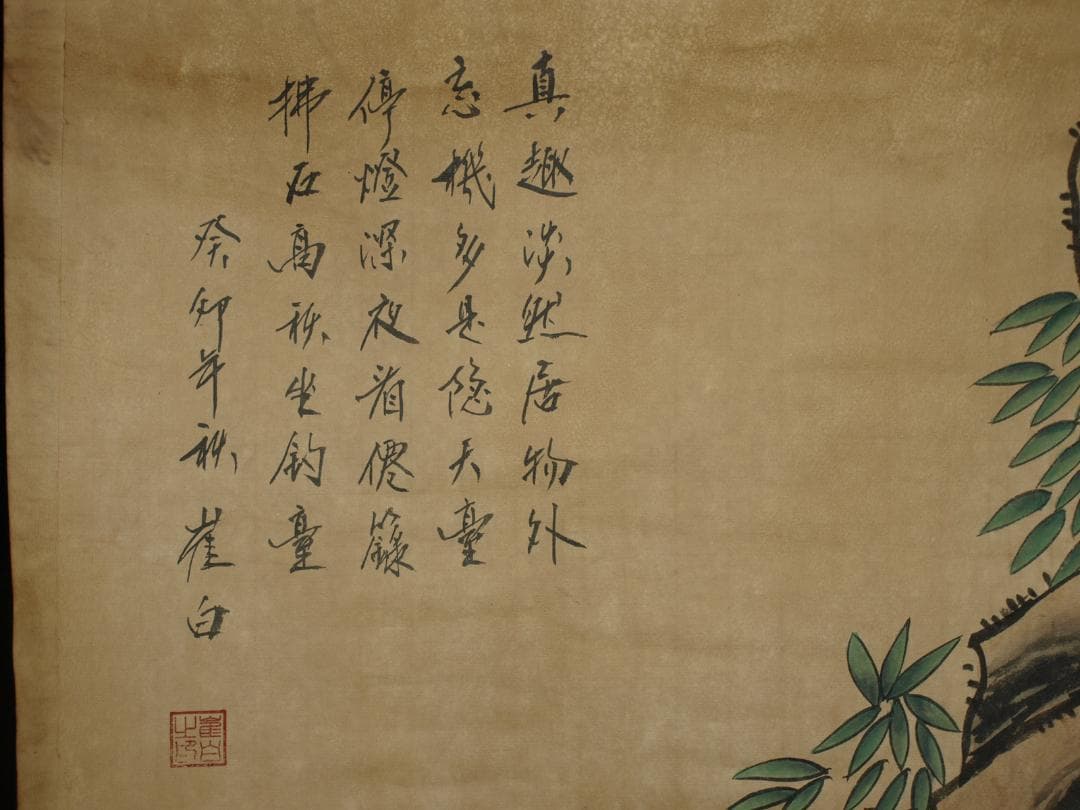 真趣淡然居物外
忘機多是隐天臺
停燈深夜看僊籙
拂石高秋坐釣臺
癸卯年秋 崔白
崔白之印